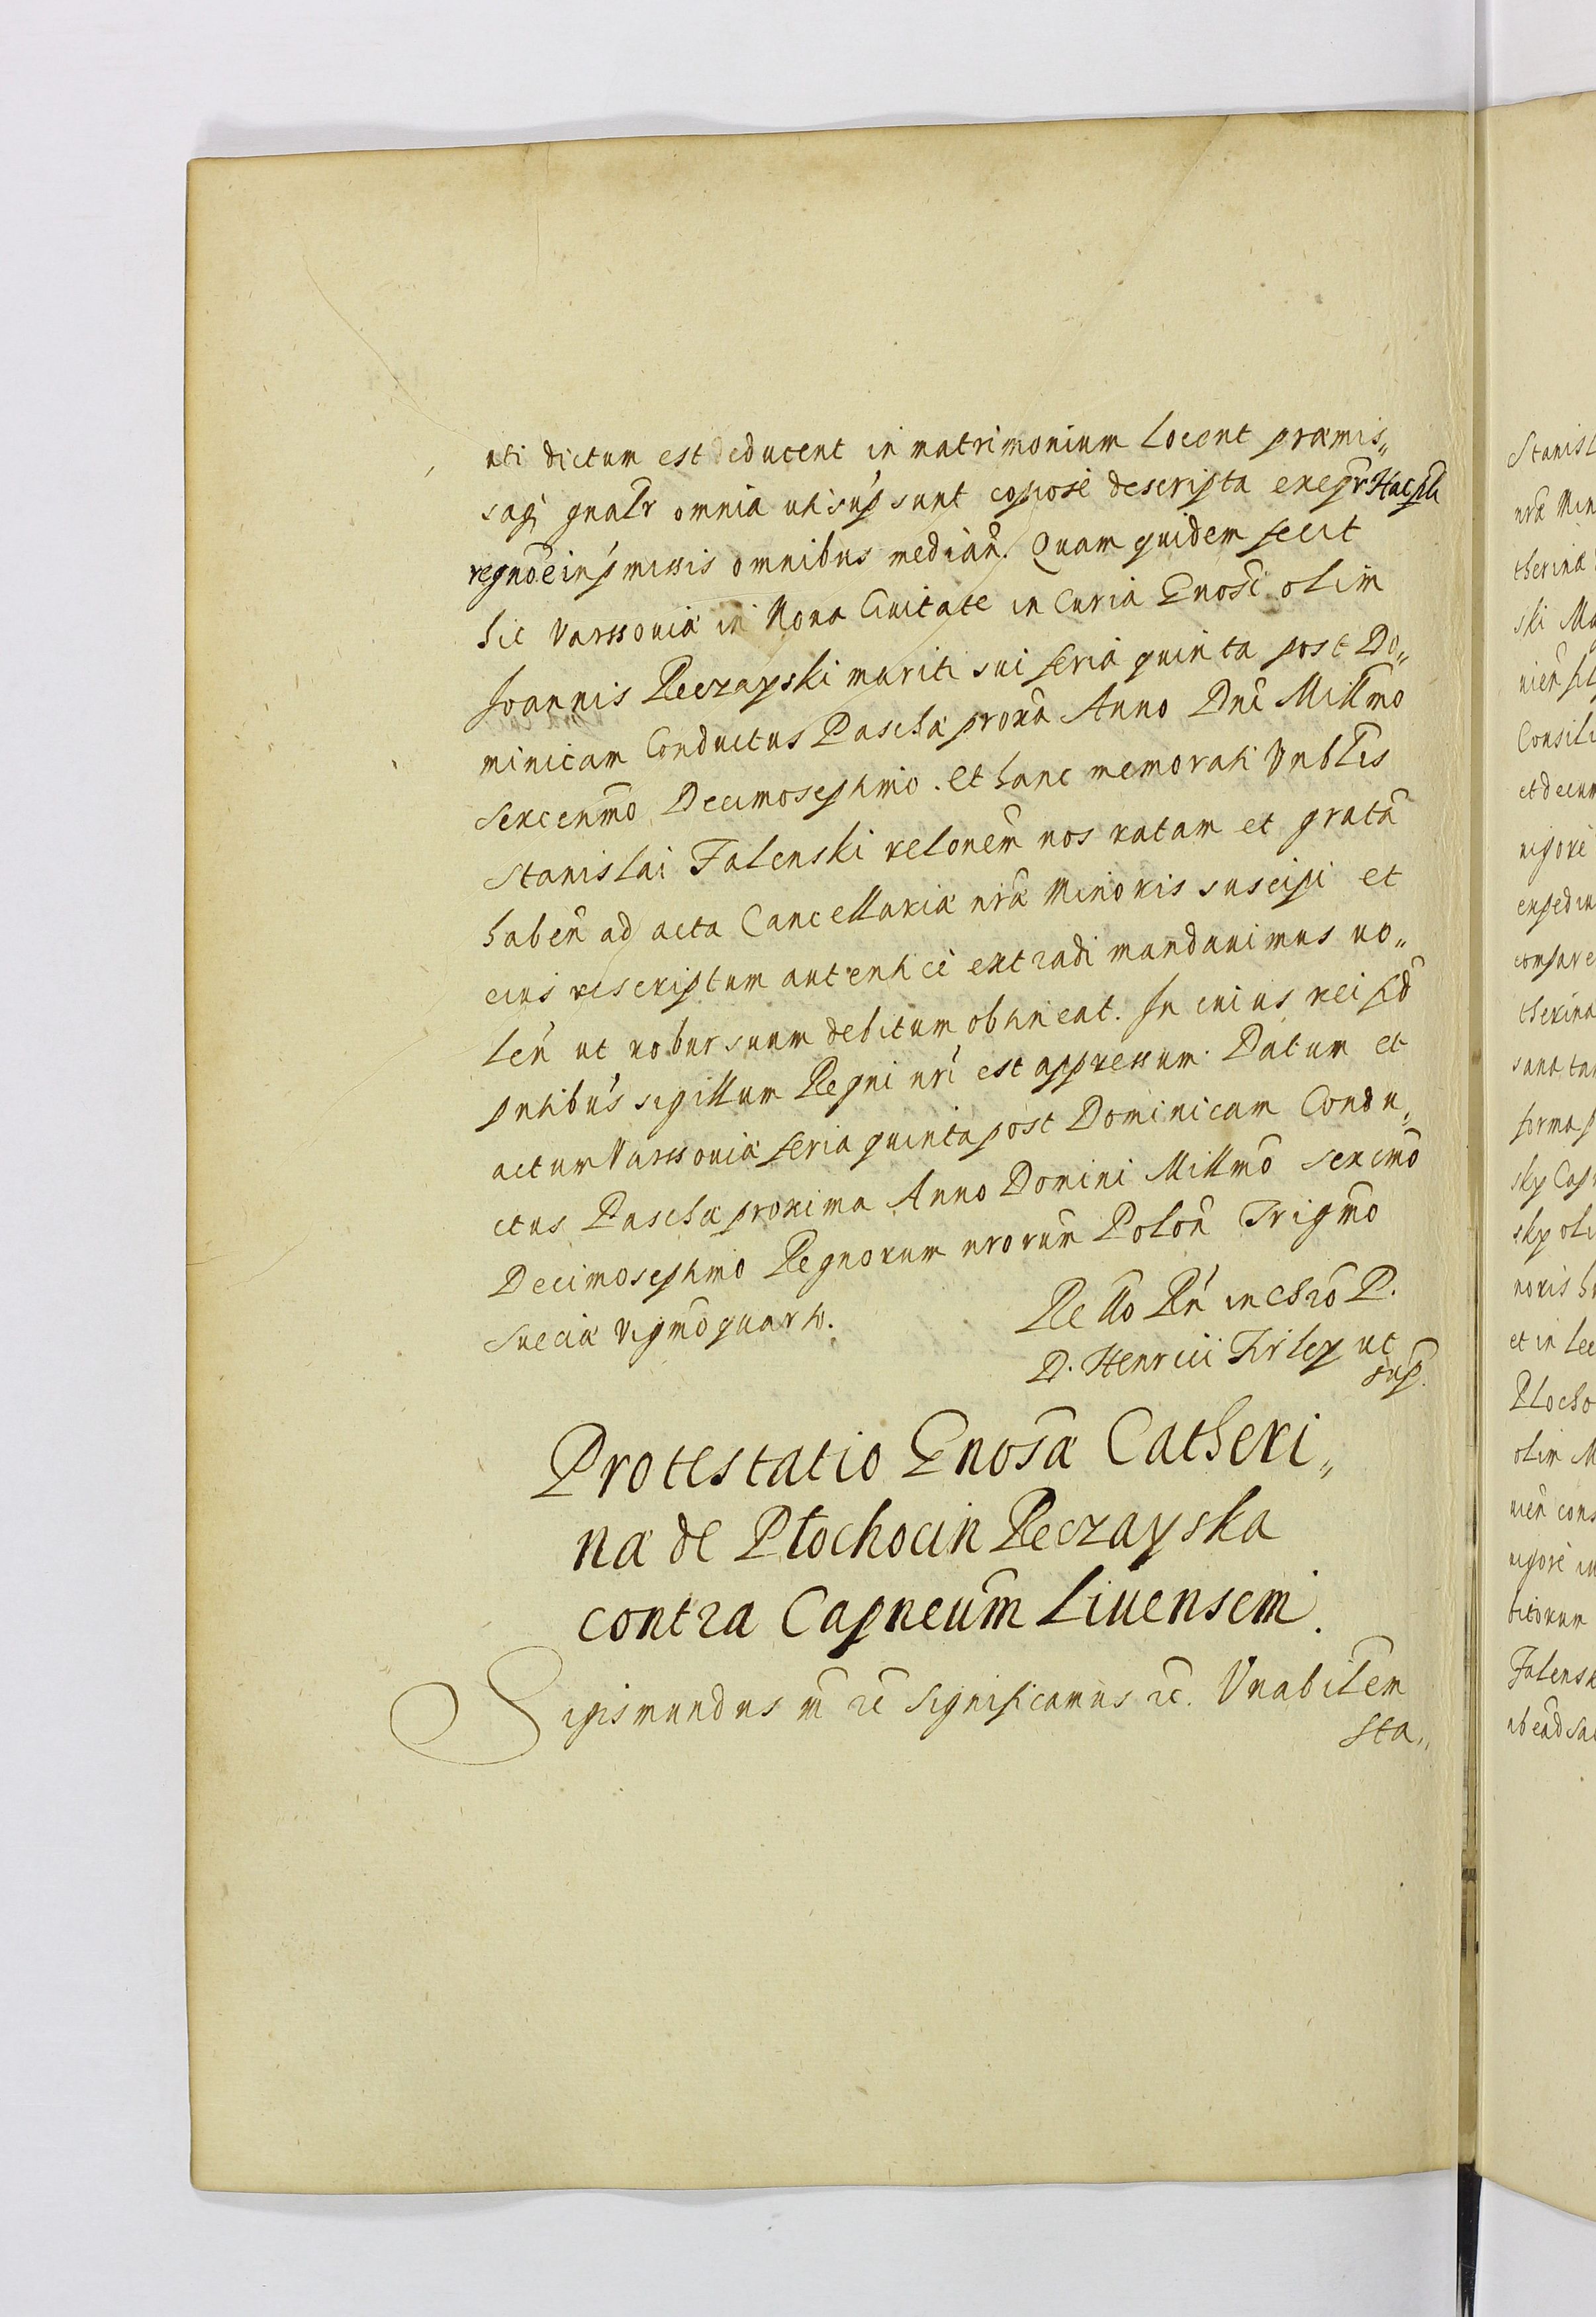 uti dictum est educent in matrimonium locent præmis„
saq; gnalr omnia uti sup sunt copiose descripta exeqr Hac
in pmissis omnibus median. Quam quidem fecit
hic Varssouiæ in Noua Ciuitate in Curia Gnosi olim
Joannis Reczayski mariti sui feria quinta post Do„
minicam Conductus Paschæ proxa Anno Dni Millmo
Sexcenmo Decimoseptimo. Et hanc memorati Vnblis
Stanislai Falenski relonem nos ratam et gratā
haben ad acta Cancellariæ nræ Minoris suscipi et
eius rescriptum autentice extradi mandauimus uo„
len ut robur suum debitum obtineat. In cuius rei fid
pntibus sigillum Regni nri est appressum. Datum et
actum Varssouiæ feria quinta post Dominicam Condu„
ctus Paschæ proxima Anno Domini Millmo Sexcmo
Decimoseptimo Regnorum nrorum Polon Trigmo
Sueciæ Vigmo quarto.
Rello Rn in Chro P.
D. Henrici Firley ut
sup.
Protestatio Gnosæ Catheri„
næ de Płochocin Reczayska
contra Capneum Liuensem.
Sigismundus III rc Significamus rc. Vnabilem
Sta„
Stanisl
nræ Min
therina
ski Ma
Consili
et decum
uigore
compare
therina
forma p
sky Cap
sky oli
noris
et in
Płocho
olim M
uien cons
uigore in
Falensk